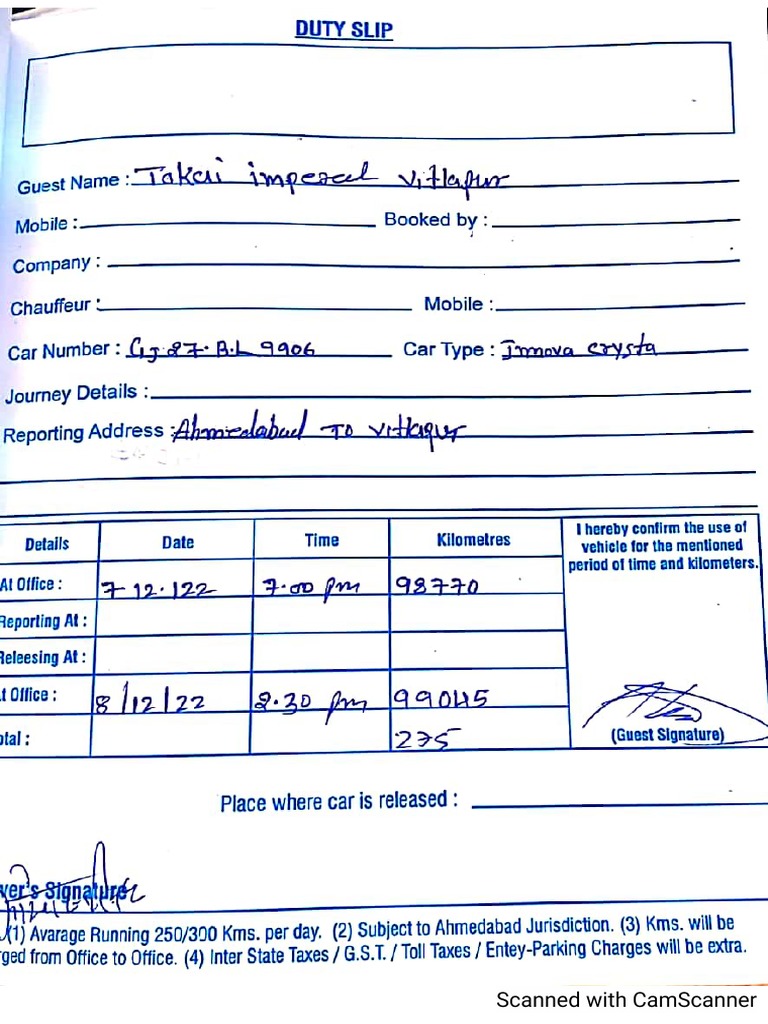 DUTY SLIP
Guest Name : Takai imperal vitlapur
Mobile : Booked by :
Company :
Chauffeur : Mobile :
Car Number : GJ 27. B.L 9906 Car Type : Innova crysta
Journey Details :
Reporting Address : Ahmedabad To vitlapur
Details Date Time Kilometres I hereby confirm the use of vehicle for the mentioned period of time and kilometers.
At Office : 7 12.122 7.00 pm 98770
Reporting At :
Releesing At :
t Office : 8/12/22 2.30 pm 99045
otal : 275 (Guest Signature)
Place where car is released :
ver's Signature
(1) Avarage Running 250/300 Kms. per day. (2) Subject to Ahmedabad Jurisdiction. (3) Kms. will be
ged from Office to Office. (4) Inter State Taxes / G.S.T. / Toll Taxes / Entey-Parking Charges will be extra.
Scanned with CamScanner